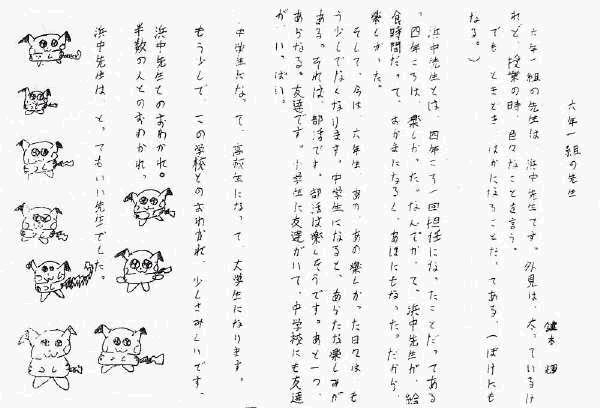 六年一組の先生
鍵本 輝
六年一組の先生は、浜中先生です。外見は、太っているけ
れど、授業の時、色々なことを言う。
でも、ときどき、ばかになることだってある。(ぼけにも
なる。)
浜中先生とは、四年ごろ一回担任になったことだってある
。四年ごろは、楽しかった。なんでかって、浜中先生が、給
食時間だって、おかまになるし、あほにもなった。だから、
楽しかった。
そして、今は、六年生、あの、あの楽しかった日々は、も
う少しでなくなります。中学生になると、あらたな楽しみが
ある。それは、部活です。部活は楽しそうです。あと一つ、
あらなる。友達です。小学生に友達がいて、中学校にも友達
が、いっぱい。
中学生になって、高校生になって、大学生になります。
もう少しで、この学校とのおわかれ、少しさみしいです。
浜中先生とのおわかれ。
半数の人とのおわかれ。
浜中先生は、とってもいい先生でした。